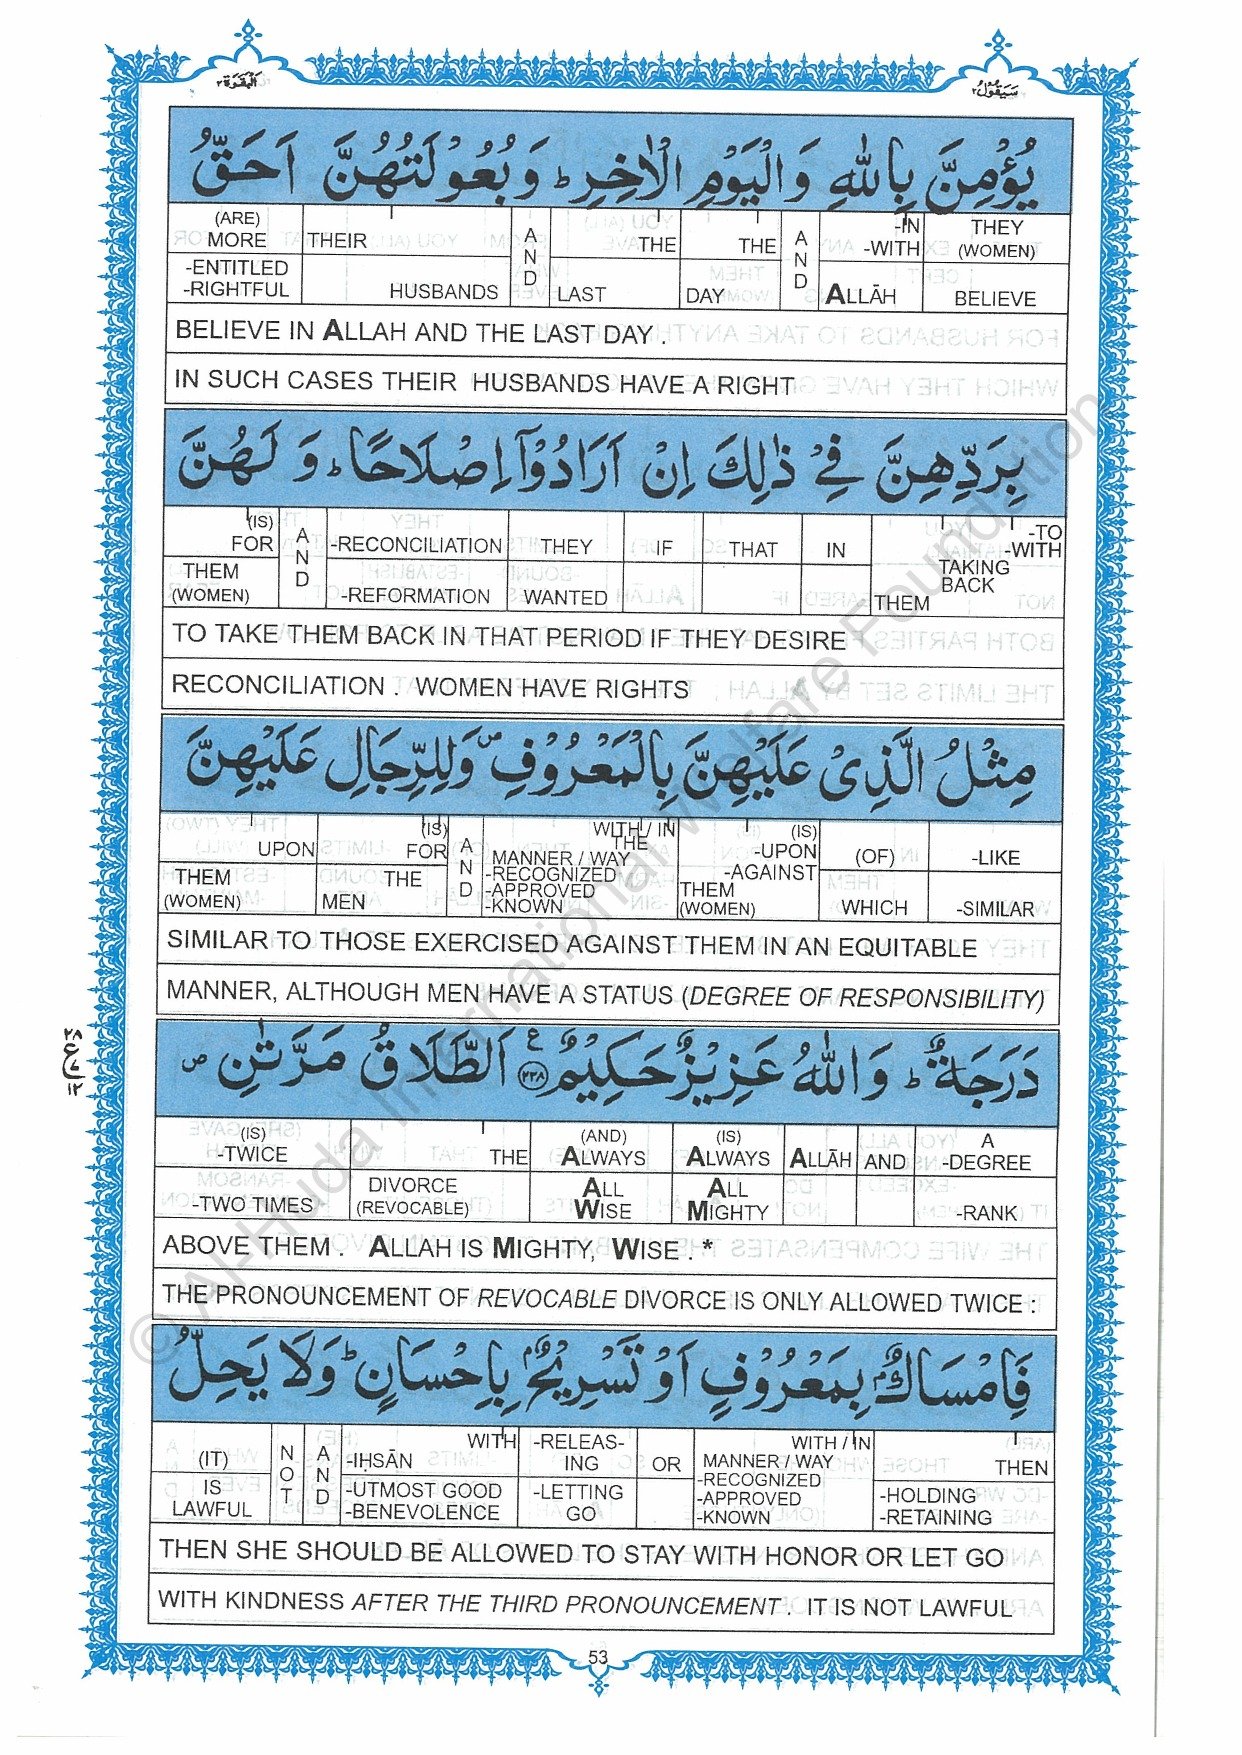 البقرة ٢
سيقول ٢
يُؤْمِنَّ بِاللّٰهِ وَالْيَوْمِ الْاٰخِرِ ؕ وَ بُعُوْلَتُهُنَّ اَحَقُّ
(ARE) MORE THEIR AND THE THE AND -IN -WITH THEY (WOMEN)
-ENTITLED -RIGHTFUL HUSBANDS LAST DAY ALLĀH BELIEVE
BELIEVE IN ALLAH AND THE LAST DAY .
IN SUCH CASES THEIR HUSBANDS HAVE A RIGHT
بِرَدِّهِنَّ فِيْ ذٰلِكَ اِنْ اَرَادُوْٓا اِصْلَاحًا ؕ وَ لَهُنَّ
(IS) FOR AND -RECONCILIATION THEY IF THAT IN -TO -WITH
THEM (WOMEN) -REFORMATION WANTED TAKING BACK THEM
TO TAKE THEM BACK IN THAT PERIOD IF THEY DESIRE
RECONCILIATION . WOMEN HAVE RIGHTS
مِثْلُ الَّذِيْ عَلَيْهِنَّ بِالْمَعْرُوْفِ ۪ وَلِلرِّجَالِ عَلَيْهِنَّ
UPON (IS) FOR AND WITH / IN THE (IS) -UPON -AGAINST (OF) -LIKE
THEM (WOMEN) THE MEN MANNER / WAY -RECOGNIZED -APPROVED -KNOWN THEM (WOMEN) WHICH -SIMILAR
SIMILAR TO THOSE EXERCISED AGAINST THEM IN AN EQUITABLE
MANNER, ALTHOUGH MEN HAVE A STATUS (DEGREE OF RESPONSIBILITY)
دَرَجَةٌ ؕ وَاللّٰهُ عَزِيْزٌ حَكِيْمٌ ﴿٢٣٨﴾ ع اَلطَّلَاقُ مَرَّتٰنِ ص
٢٨
ع
١٢
(IS) -TWICE THE (AND) ALWAYS (IS) ALWAYS ALLĀH AND A -DEGREE
-TWO TIMES DIVORCE (REVOCABLE) ALL WISE ALL MIGHTY -RANK
ABOVE THEM . ALLAH IS MIGHTY, WISE . *
THE PRONOUNCEMENT OF REVOCABLE DIVORCE IS ONLY ALLOWED TWICE :
فَاِمْسَاكٌۢ بِمَعْرُوْفٍ اَوْ تَسْرِيْحٌۢ بِاِحْسَانٍ ؕ وَلَا يَحِلُّ
(IT) NOT AND WITH -IḤSĀN -RELEAS- ING OR WITH / IN MANNER / WAY THEN
IS LAWFUL -UTMOST GOOD -BENEVOLENCE -LETTING GO -RECOGNIZED -APPROVED -KNOWN -HOLDING -RETAINING
THEN SHE SHOULD BE ALLOWED TO STAY WITH HONOR OR LET GO
WITH KINDNESS AFTER THE THIRD PRONOUNCEMENT . IT IS NOT LAWFUL
53
© Al-Huda International Welfare Foundation